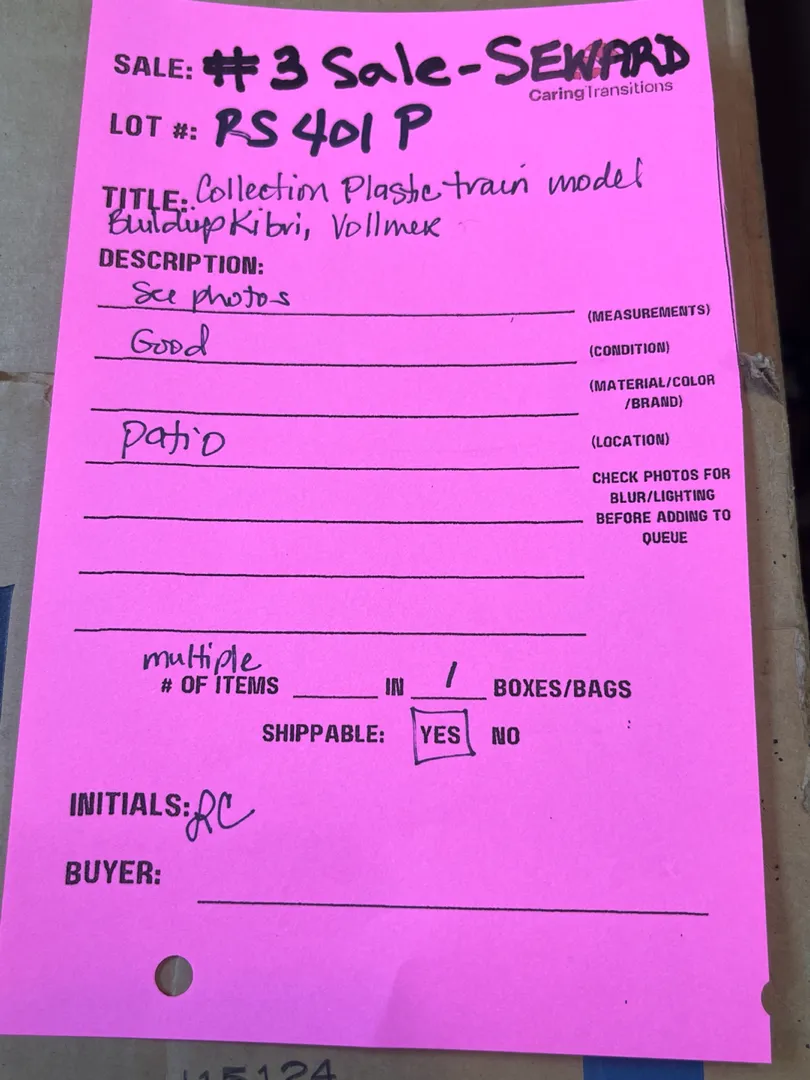 SALE: #3 Sale-SEWARD
CaringTransitions
LOT #: RS401P
TITLE: Collection Plastic train model
Buildup Kibri, Vollmer
DESCRIPTION:
See photos
(MEASUREMENTS)
Good
(CONDITION)
(MATERIAL/COLOR
/BRAND)
patio
(LOCATION)
CHECK PHOTOS FOR
BLUR/LIGHTING
BEFORE ADDING TO
QUEUE
multiple
# OF ITEMS ______ IN 1 BOXES/BAGS
SHIPPABLE: YES NO
INITIALS: RC
BUYER:
15124